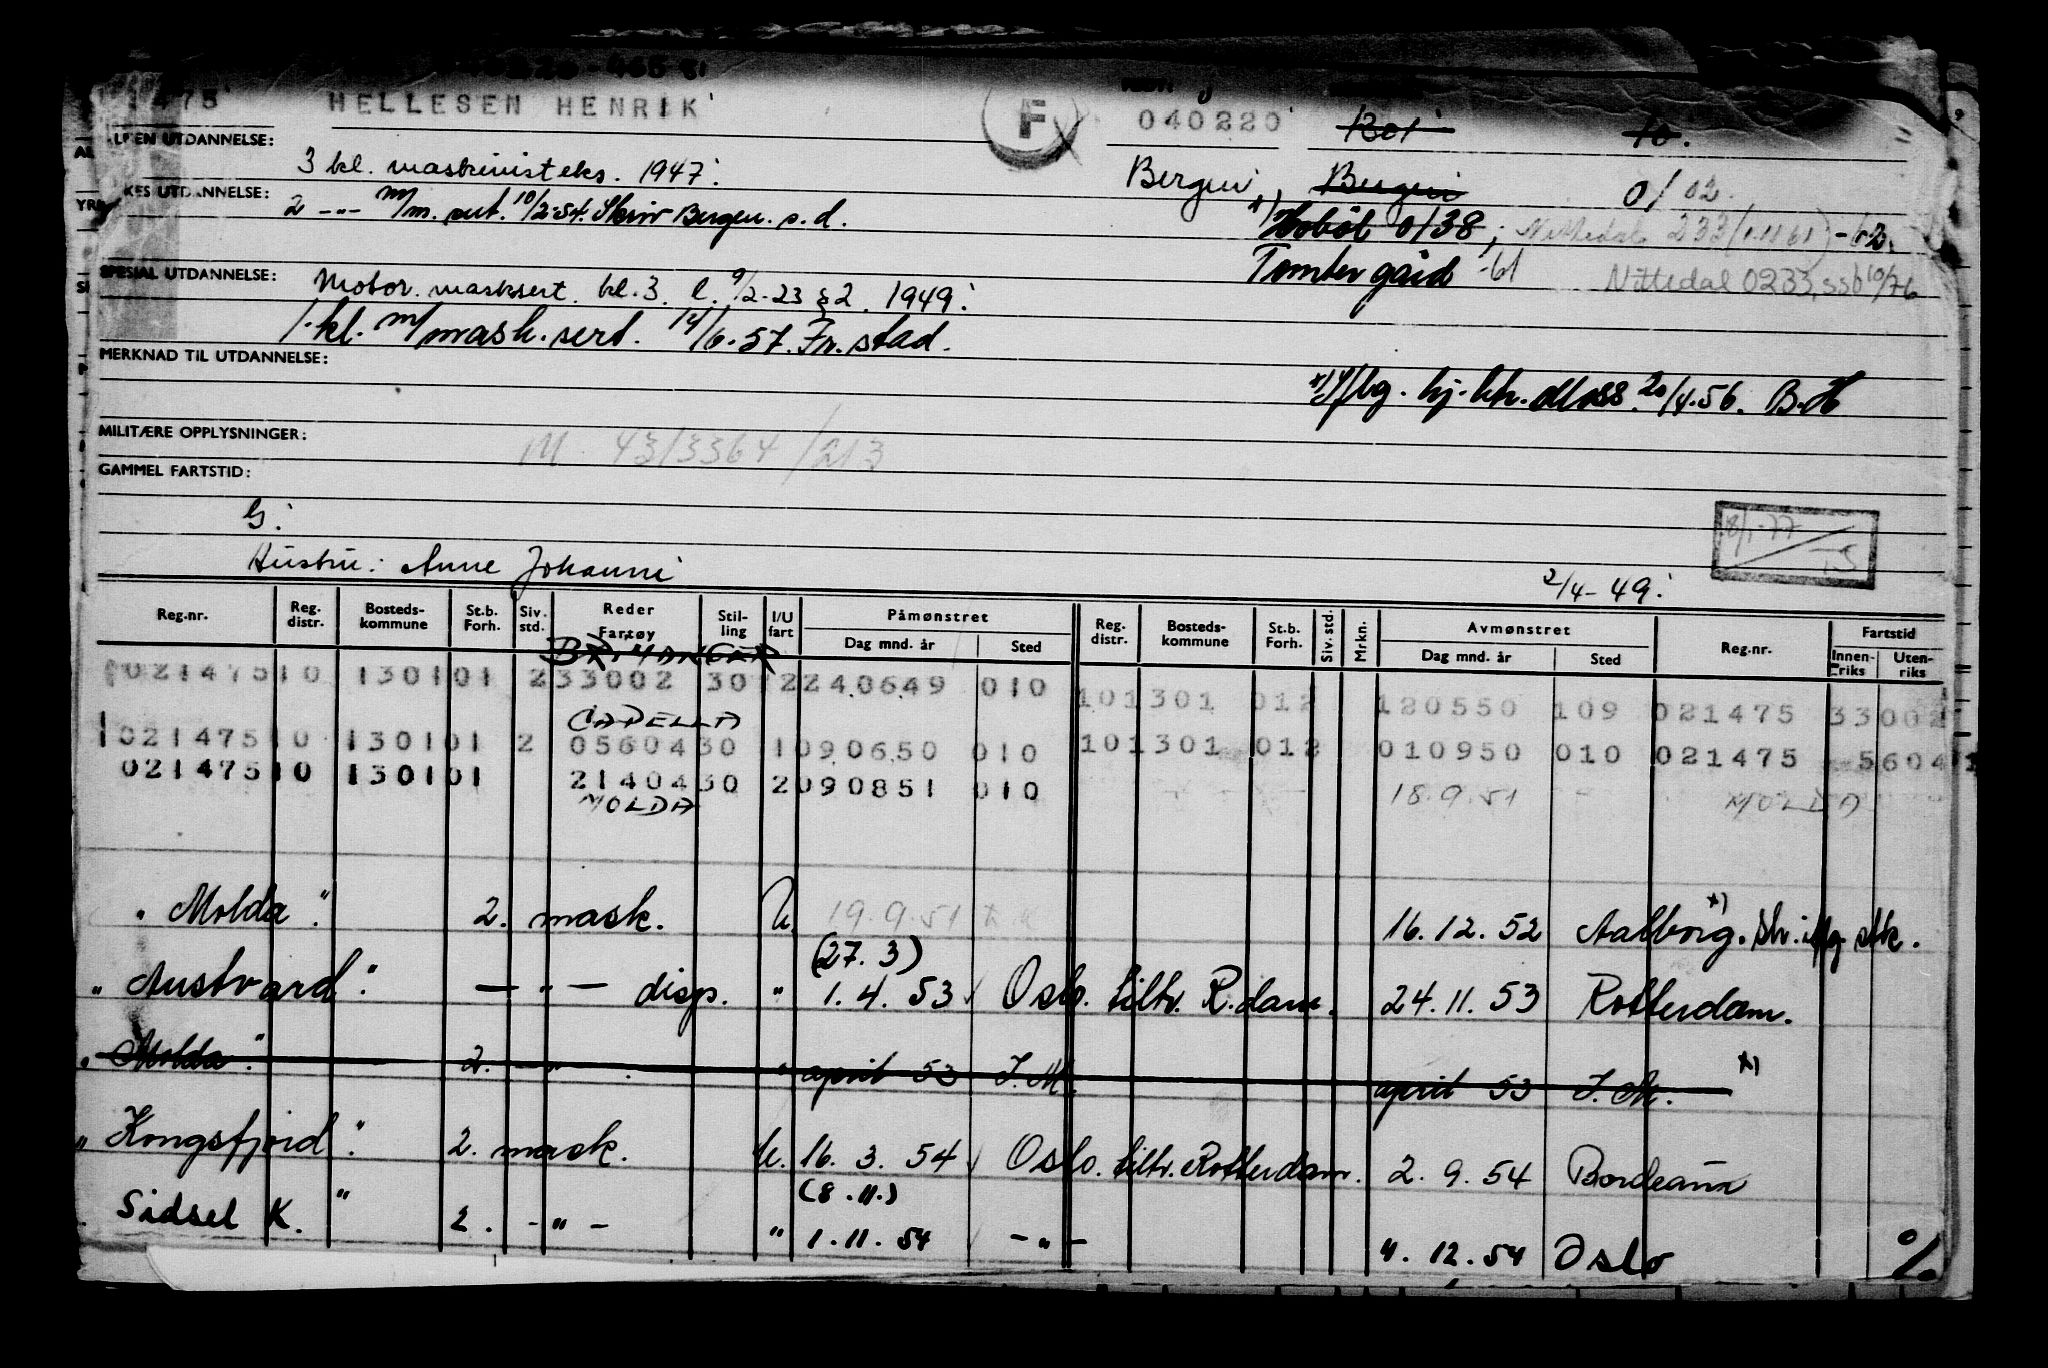 1475 HELLESEN HENRIK F 040220 Bel 10.
UTDANNELSE:
3 kl. maskinisteks. 1947. Bergen, Bergen 0/02
UTDANNELSE:
2 -"- m/m. sert. 10/2-54. Skriv Bergen. s.d. x) Hobøl 0138; Nittedal 233 (1.11.61)
Tomter gård -61 Nittedal 0233, ssb 10/76
SPESIAL UTDANNELSE: Motor. masksert. kl. 3. l. 9/2-23 § 2. 1949.
1. kl. m/mask. sert. 14/6.57. Fr.stad.
MERKNAD TIL UTDANNELSE:
x) Iflg. hj. bk. Moss. 20/4.56. B.H
MILITÆRE OPPLYSNINGER: M 43/3364/213
GAMMEL FARTSTID:
G.
8/1-77 TS
Hustru: Anne Johanne
2/4-49.
Reg.nr. Reg. distr. Bosteds- kommune St.b. Forh. Siv. std. Reder Fartøy Stil- ling I/U fart Påmønstret Dag mnd. år Sted Reg. distr. Bosteds- kommune St.b. Forh. Siv. std. Mrkn. Avmønstret Dag mnd. år Sted Reg.nr. Fartstid Innen- riks Uten- riks
BRIMANGER
021475 10 1301 01 2 33002 30 2 240649 010 10 1301 01 2 120550 109 021475 33002
CAPELLA
021475 10 1301 01 2 05604 30 1 090650 010 10 1301 01 2 010950 010 021475 5604 1
021475 10 1301 01 21404 30 2 090851 010 18.9.51 - MOLDA
MOLDA
"Molda". 2. mask. U. 19.9.51 16.12.52 Aalborg. x) skr. iflg. stk.
(27.3)
"Austvard". -"- disp. " 1.4.53 Oslo. tiltr. R.dam. 24.11.53 Rotterdam.
"Molda". 2. -"- " april 53 I.M. april 53 I.M. x)
"Kongsfjord". 2. mask. U. 16.3.54 Oslo. tiltr. Rotterdam. 2.9.54 Bordeaux
(8.11.)
"Sidsel K." 2. -"- " 1.11.54 -"- 4.12.54 Oslo %